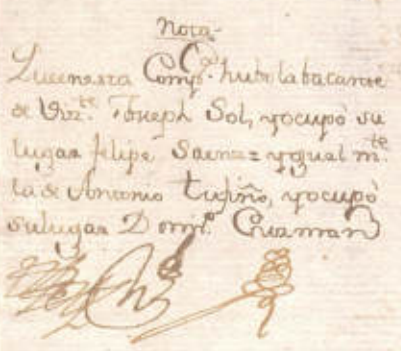 Nota
Que en esta Comp.ª hubo la bacante
de Viz.te Joseph Sol, y ocupò su
lugar felipe Saenz = y gual m.te
la de Antonio tupiño, y ocupò
su lugar Dom.º Guaman